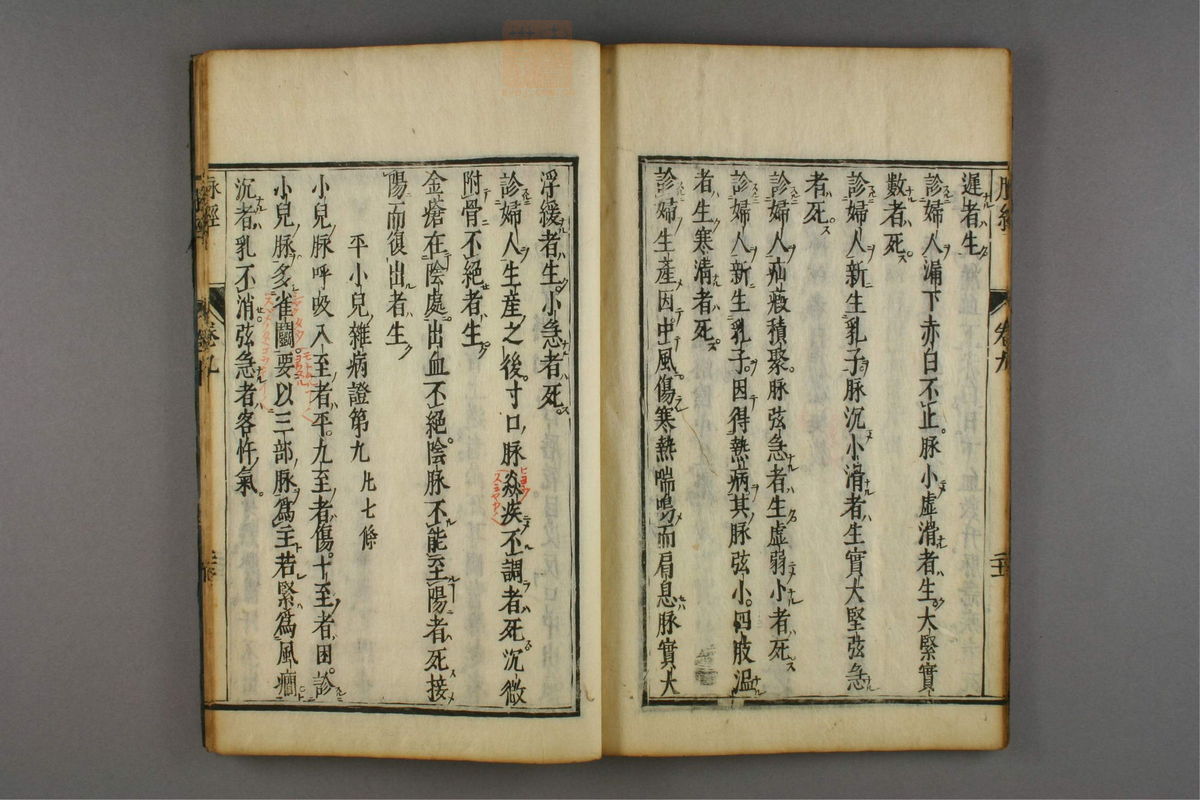 遲者生
診婦人漏下赤白不止脉小虛滑者生大緊實
數者死
診婦人新生乳子脉沉小滑者生實大堅弦急
者死
診婦人疝瘕積聚脉弦急者生虛弱小者死
診婦人新生乳子因得熱病其脉弦小四肢溫
者生寒清者死
診婦生產因中風傷寒熱喘鳴而肩息脉實大
浮緩者生小急者死
診婦人生產之後寸口脉焱疾不調者死沉微
附骨不絕者生
金瘡在陰處出血不絕陰脉不能至陽者死接
陽而復出者生
平小兒雜病證第九 凡七條
小兒脉呼吸八至者平九至者傷十至者困診
小兒脉多雀鬪要以三部脉爲主若緊爲風癎
沉者乳不消弦急者客忤氣
脉經
卷九